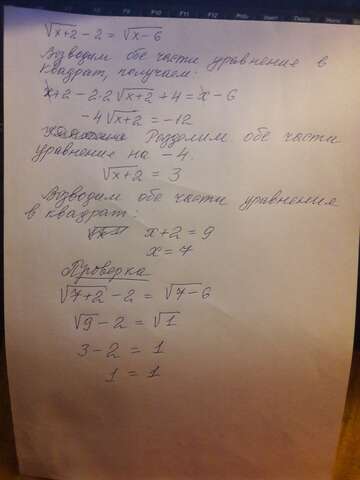 √x+2 - 2 = √x-6
Возводим обе части уравнение в
квадрат, получаем:
x+2 - 2·2√x+2 + 4 = x - 6
-4√x+2 = -12
Розделим обе части
уравнение на -4.
√x+2 = 3
Возводим обе части уравнения
в квадрат:
x+2 = 9
x = 7
Проверка
√7+2 - 2 = √7-6
√9 - 2 = √1
3 - 2 = 1
1 = 1